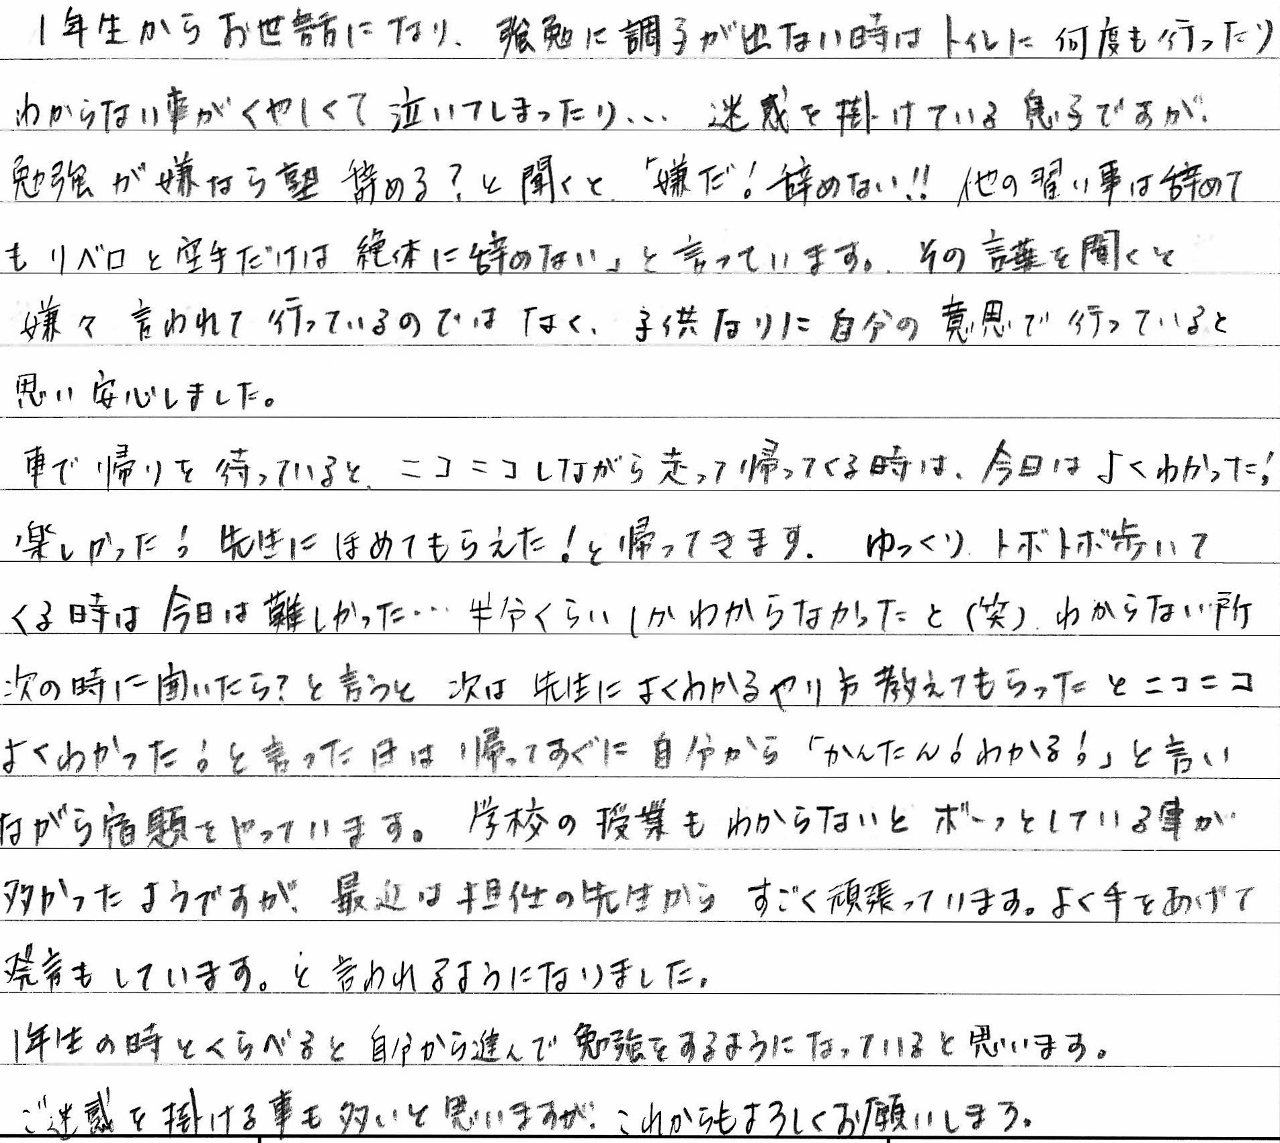 1年生からお世話になり、強勉に調子が出ない時はトイレに何度も行ったり
わからない事がくやしくて泣いてしまったり... 迷惑を掛けている息子ですが、
勉強が嫌なら塾辞める?と聞くと、「嫌だ!辞めない!!他の習い事は辞めて
もリベロと空手だけは絶体に辞めない」と言っています。その言葉を聞くと
嫌々言われて行っているのではなく、子供なりに自分の意思で行っていると
思い安心しました。
車で帰りを待っていると、ニコニコしながら走って帰ってくる時は、今日はよくわかった!
楽しかった!先生にほめてもらえた!と帰ってきます。ゆっくりトボトボ歩いて
くる時は今日は難しかった… 半分くらいしかわからなかったと(笑)わからない所
次の時に聞いたら?と言うと次は先生によくわかるやり方教えてもらったとニコニコ
よくわかった!と言った日は帰ってすぐに自分から「かんたん!わかる!」と言い
ながら宿題をやっています。学校の授業もわからないとボーっとしている事が
多かったようですが、最近は担任の先生からすごく頑張っています。よく手をあげて
発言もしています。と言われるようになりました。
1年生の時とくらべると自分から進んで勉強をするようになっていると思います。
ご迷惑を掛ける事も多いと思いますが、これからもよろしくお願いします。